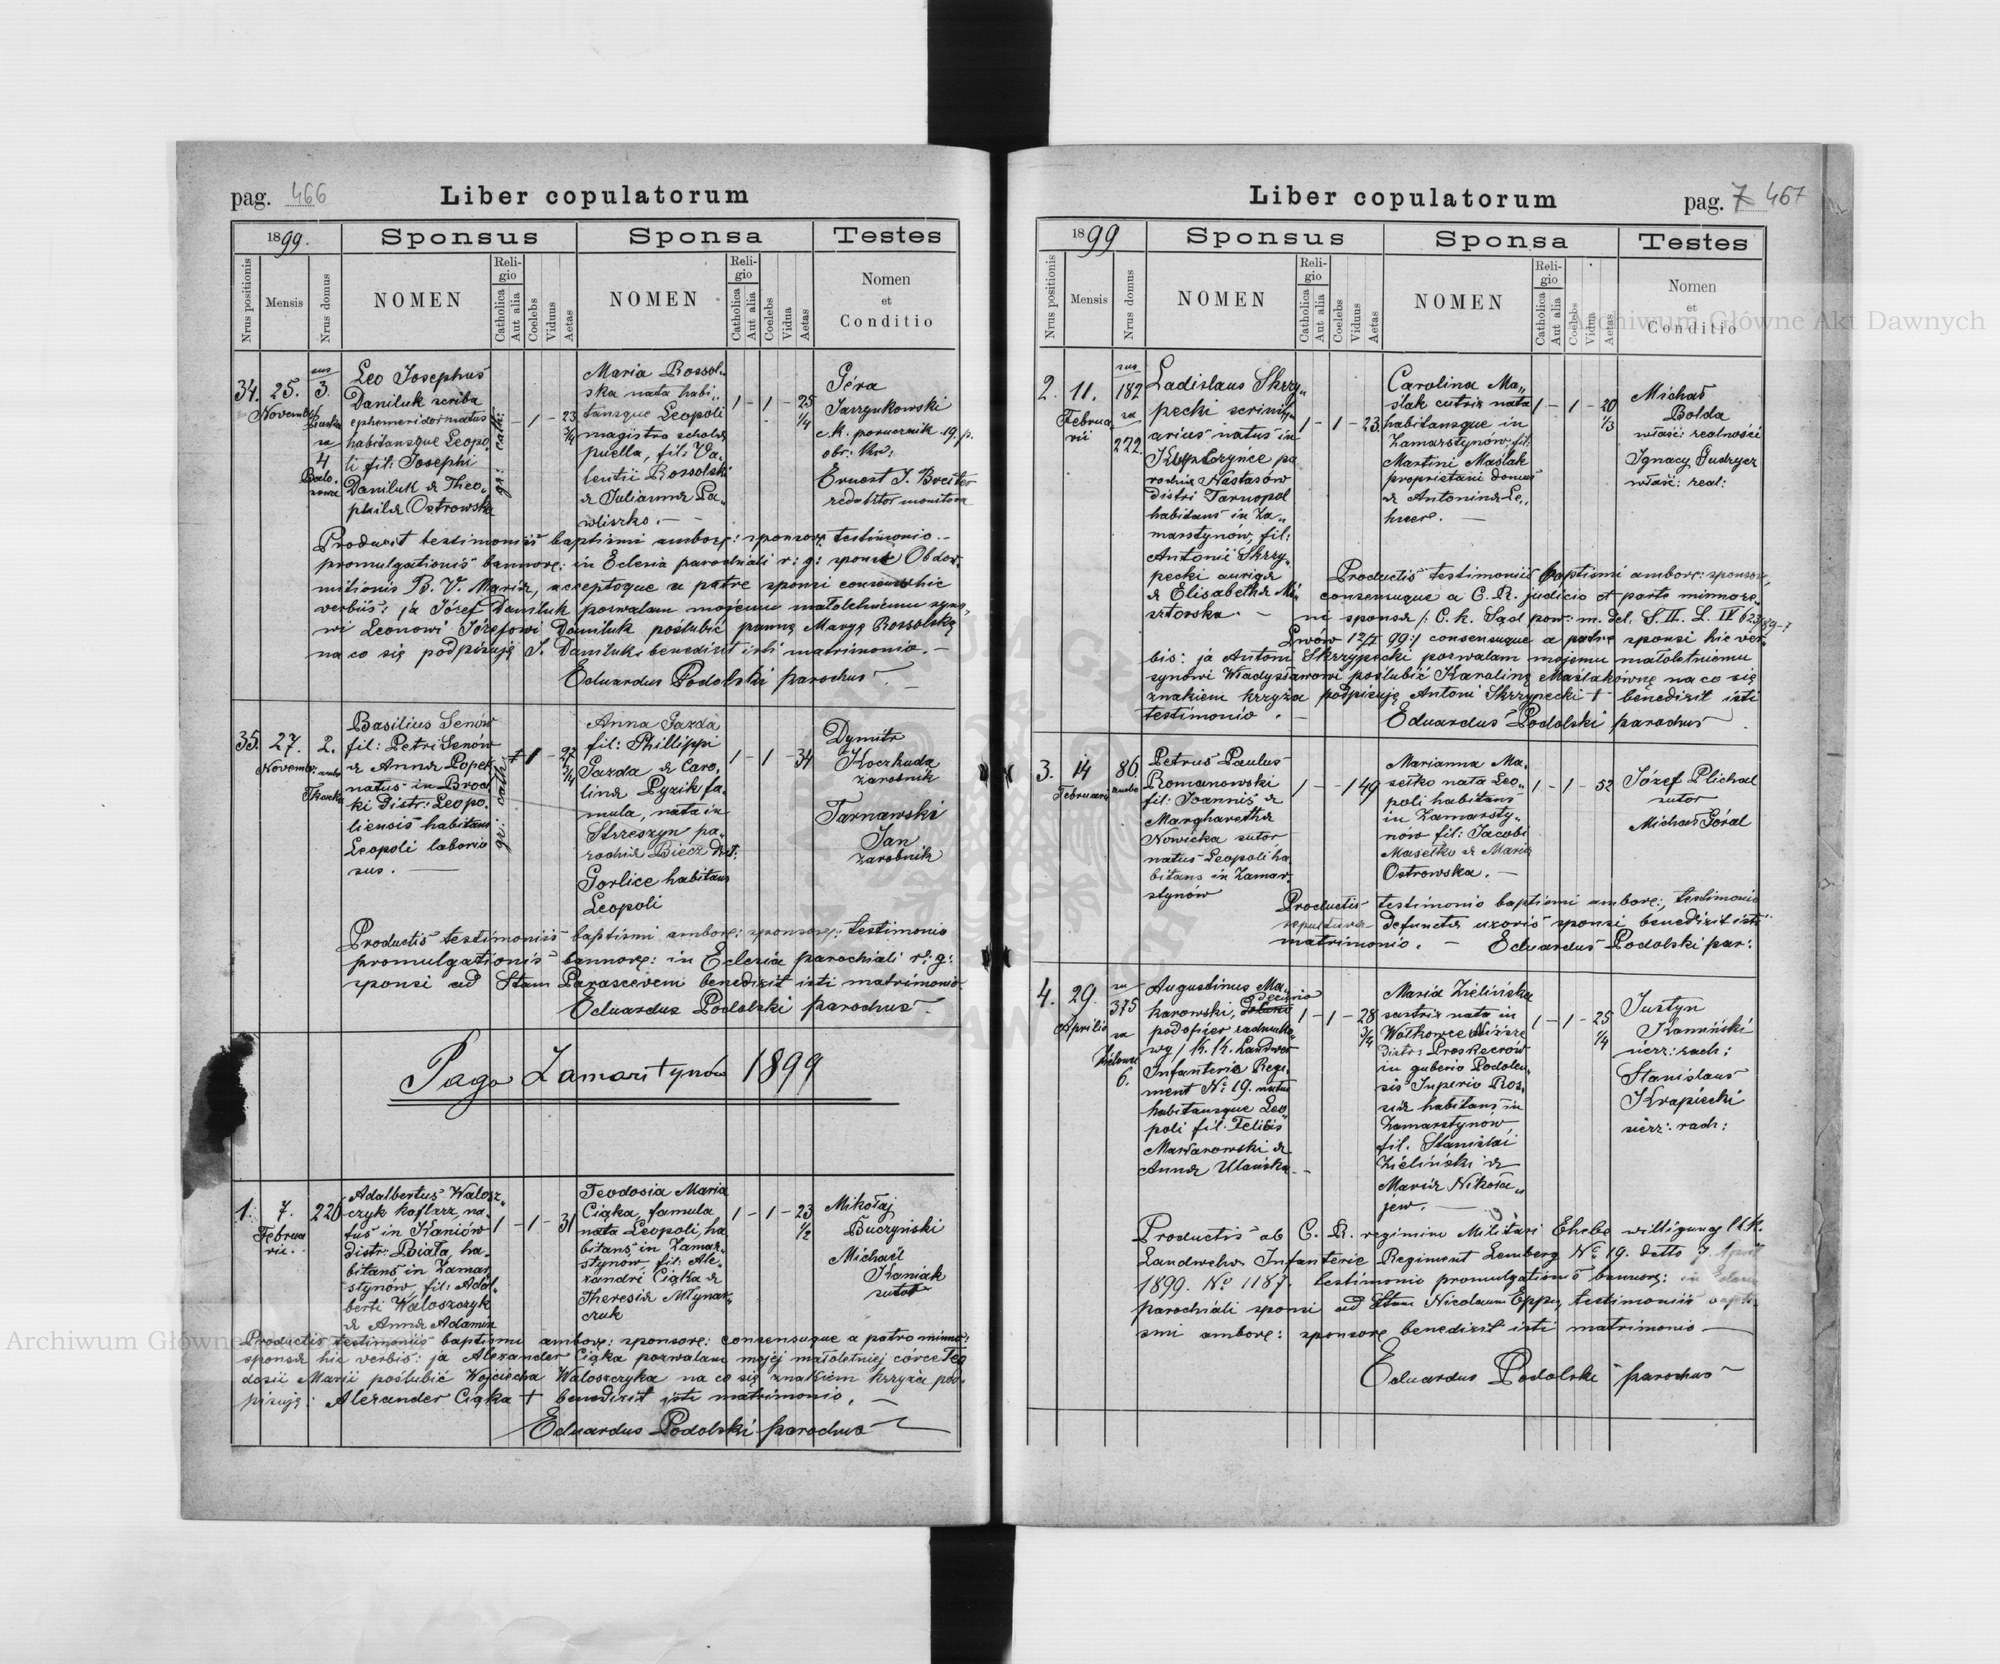 pag. 466
Liber copulatorum
1899.
Sponsus
Sponsa
Testes
Nrus positionis
Mensis
Nrus domus
NOMEN
Religio
Catholica
Aut alia
Coelebs
Viduus
Aetas
NOMEN
Religio
Catholica
Aut alia
Coelebs
Vidua
Aetas
Nomen
et
Conditio
34. 25. Novembr
3.
4
Leo Josephus
Daniluk scriba
ephemeridoi natus
habitansque Leopo
li fil: Josephi
Daniluk & Theo„
philæ Ostrowska
gr: cath:
1 - 23 3/4
Maria Rossol„
ska nata habi„
tansque Leopoli
magistra scholæ
puella, fil: Va„
lentii Rossolski
& Juliannæ Pa„
wliszko. —
1 - 1 - 25 1/4
Géra
Jarzynkowski
c.k. porucznik 19. p.
obr: kr:
Ernest T. Breiter
redaktor monitora
Product testimoniis baptismi ambore: sponsore testimonio
promulgationis bannore: in Eclesia parochiali r: g: sponsi Obdor„
mitionis B. V. Mariæ, acceptoque a patre sponsi consensu hic
verbiis: ja Józef Daniluk pozwalam mojemu małoletniemu syno„
wi Leonowi Józefowi Daniluk poślubić pannę Maryę Rossolską
na co się podpisuję J. Daniluk. benedixit isti matrimonio. —
Eduardus Podolski parochus. —
35. 27. Novembr:
2. ambo
Basilius Senów
fil: Petri Senów
& Annæ Popek
natus in Brod
ki Distr: Leopo„
liensis habitans
Leopoli laborio
sus. —
gr: cath:
1 - 27 3/4
Anna Gazda
fil: Phillippi
Gazda & Caro„
linæ Pyzik fa„
mula, nata in
Strzeszyn pa„
rochiæ Biecz Dist:
Gorlice habitans
Leopoli
1 - 1 - 34
Dymitr
Koczkuda
zarobnik
Tarnawski
Jan
zarobnik
Productis testimoniis baptismi ambore: sponsore: testimonio
promulgationis bannore: in Eclesia parochiali r: g:
sponsi ad Stam Parascevem benedixit isti matrimonio.
Eduardus Podolski parochus. —
Pago Zamarstynów 1899
1. 7. Februa
rii.
226
Adalbertus Walosz„
czyk kaflarz, na„
tus in Kaniów
distr: Biała, ha„
bitans in Zamar
stynów, fil: Adal
berti Waloszczyk
& Annæ Adamus
1 - 1 - 31
Teodosia Maria
Ciąka, famula,
nata Leopoli, ha
bitans in Zamar„
stynów fil: Ale„
xandri Ciąka &
Theresiæ Młynar„
czuk
1 - 1 - 23 1/2
Mikołaj
Buczyński
Michael
Kaniak
sutor
Productis testimoniis baptismi ambore: sponsore: consensuque a patre minno:
sponsæ hic verbis: ja Alexander Ciąka pozwalam mojej małoletniej córce Teo
dosii Marii poślubić Wojciecha Waloszczyka na co się znakiem krzyża pod„
pisuję: Alexander Ciąka + benedixit isti matrimonio. —
Eduardus Podolski parochus
Liber copulatorum
pag. 7 467
1899
Sponsus
Sponsa
Testes
Nrus positionis
Mensis
Nrus domus
NOMEN
Religio
Catholica
Aut alia
Coelebs
Viduus
Aetas
NOMEN
Religio
Catholica
Aut alia
Coelebs
Vidua
Aetas
Nomen
et
Conditio
2. 11. Februa
rii
sus
182
sa
272.
Ladislaus Skrzy„
pecki scrini„
arius natus in
Kupczyńce pa
rochiæ Nastasów
Distri Tarnopol
habitans in Za„
marstynów, fil:
Antonii Skrzy„
pecki aurigæ
& Elisabethæ Mi„
sztorska. —
1 - 1 - 23.
Carolina Ma„
slak cutrix nata
habitansque in
Zamarstynów, fil:
Martini Maslak
proprietarii domus
& Antoninæ Le„
hner. —
1 - 1 - 20 1/3
Michał
Bolda
właść: realności
Ignacy Gudryez
właść: real:
Productis testimoniis baptismi ambore: sponsore,
consensuque a C. R. judicio et parte minnore„
ni sponsæ /: C. k. Sąd pow: m. del. S. II. L. IV 623/89-7
Lwów 12/I 99:/ consensuque a patre sponsi hic ver„
bis: ja Antoni Skrzypecki pozwalam mojemu małoletniemu
synowi Władysławowi poślubić Karolinę Maslakównę na co się
znakiem krzyża podpisuję Antoni Skrzypecki + benedixit isti
testimonio. —
Eduardus Podolski parochus
3. 14 Februarii
86. ambo
Petrus Paulus
Romanowski
fil: Joannis &
Margharethæ
Nowicka sutor
natus Leopoli ha
bitans in Zamar„
stynów
1 - - 1 49
Marianna Ma„
seiko nata Leo„
poli habitans
in Zamarsty„
nów fil: Jacobi
Maseiko & Mariæ
Ostrowska. —
1 - 1 - 52
Józef Plichal
sutor
Michał Góral
Productis testimonio baptismi ambore:, testimonio
sepulturæ defunctæ uxoris sponsi benedixit isti
matrimonio. — Eduardus Podolski par:
4. 29. Aprilis
375
sa
6.
Augustinus Ma„
karowski, decurio
podoficer rachunko„
wy /K. K. Landwer
Infanterie Regi„
ment No 19. natus
habitansque Leo
poli fil: Felicis
Makarowski &
Annæ Ulańska. —
1 - 1 - 28 3/4
Maria Zielińska
sastrix nata in
Wołkowce Niższe
distr: Proskecrów
in guberio Podolen„
sis Inperio Ros„
siæ habitans in
Zamarstynów
fil. Stanislai
Zieliński &
Mariæ Nikoła„
jew. —
1 - 1 - 25 1/4
Justyn
Kamiński
sierz: rach:
Stanislaus
Krapiecki
sierz: rach:
Productis ab C. R. regimine Militari Ehebewilligung /K. K.
Landwehr Infanterie Regiment Lemberg No 19. detto 7. April
1899. No 1187. testimonio promulgationis bannore: in Eclesia
parochiali sponsi ad Stum Nicolaum Eppu, testimoniis bapti„
smi ambore: sponsore benedixit isti matrimonio —
Eduardus Podolski parochus
Archiwum Główne Akt Dawnych
Archiwum Główne